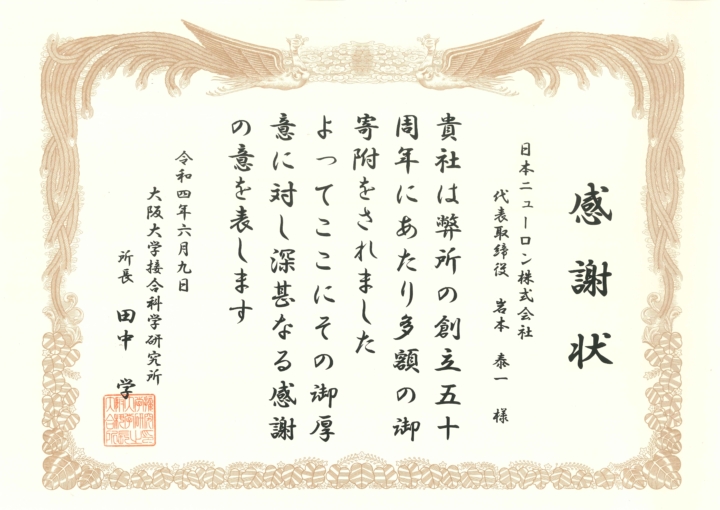 感謝状
日本ニューロン株式会社
代表取締役 岩本 泰一 様
貴社は弊所の創立五十
周年にあたり多額の御
寄附をされました
よってここにその御厚
意に対し深甚なる感謝
の意を表します
令和四年六月九日
大阪大学接合科学研究所
所長 田中 学